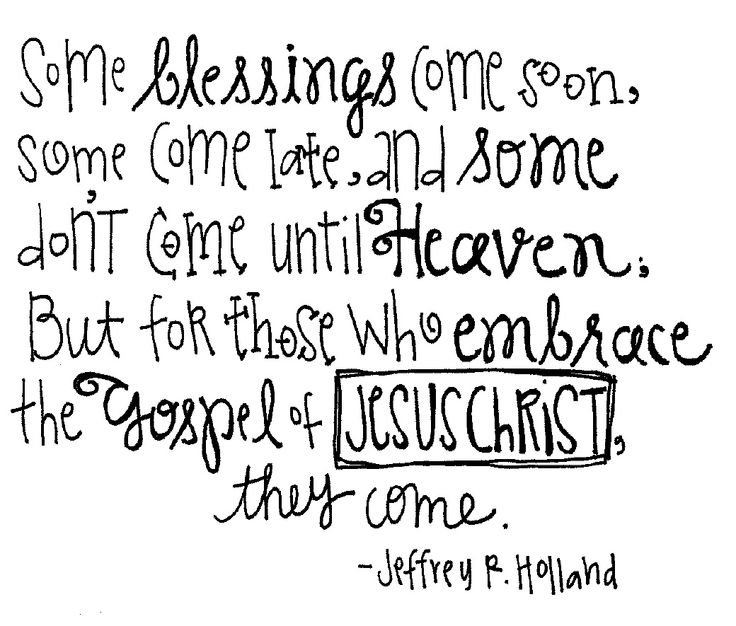 Some blessings come soon,
some come late, and some
don't come until Heaven;
But for those who embrace
the Gospel of Jesus Christ,
they come.
-Jeffrey R. Holland